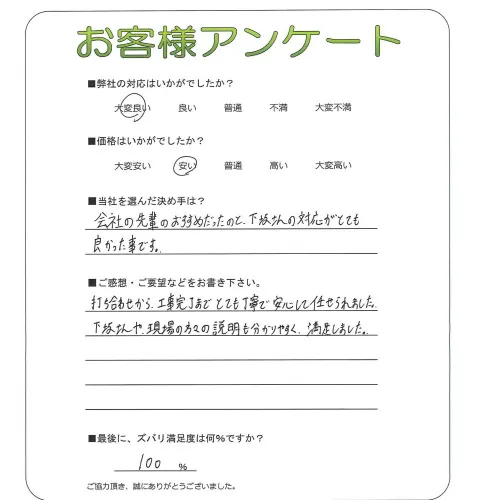 お客様アンケート
■弊社の対応はいかがでしたか？
大変良い 良い 普通 不満 大変不満
■価格はいかがでしたか？
大変安い 安い 普通 高い 大変高い
■当社を選んだ決め手は？
会社の先輩のおすすめだったのと、下坂さんの対応がとても
良かった事です。
■ご感想・ご要望などをお書き下さい。
打ち合わせから、工事完了まで とても丁寧で 安心して任せられました。
下坂さんや、現場の方々の説明も分かりやすく、満足しました。
■最後に、ズバリ満足度は何％ですか？
100 %
ご協力頂き、誠にありがとうございました。